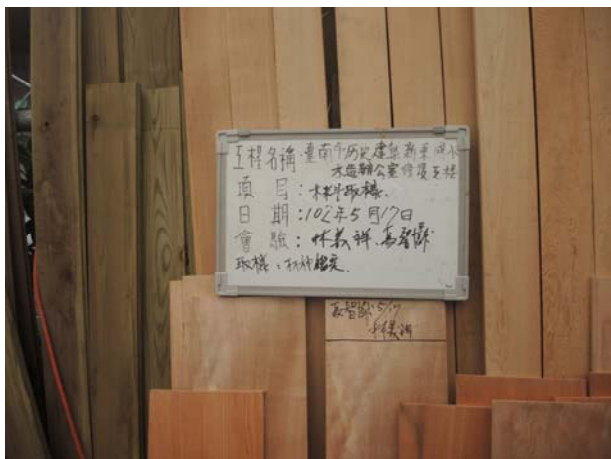 工程名稱:臺南市歷史建築新東國小
木造辦公室修復工程
項 目:木料取樣.
日 期:102年5月17日
會 驗:林義祥.高智
取樣:材種鑑定.
高智 5/17
林義祥